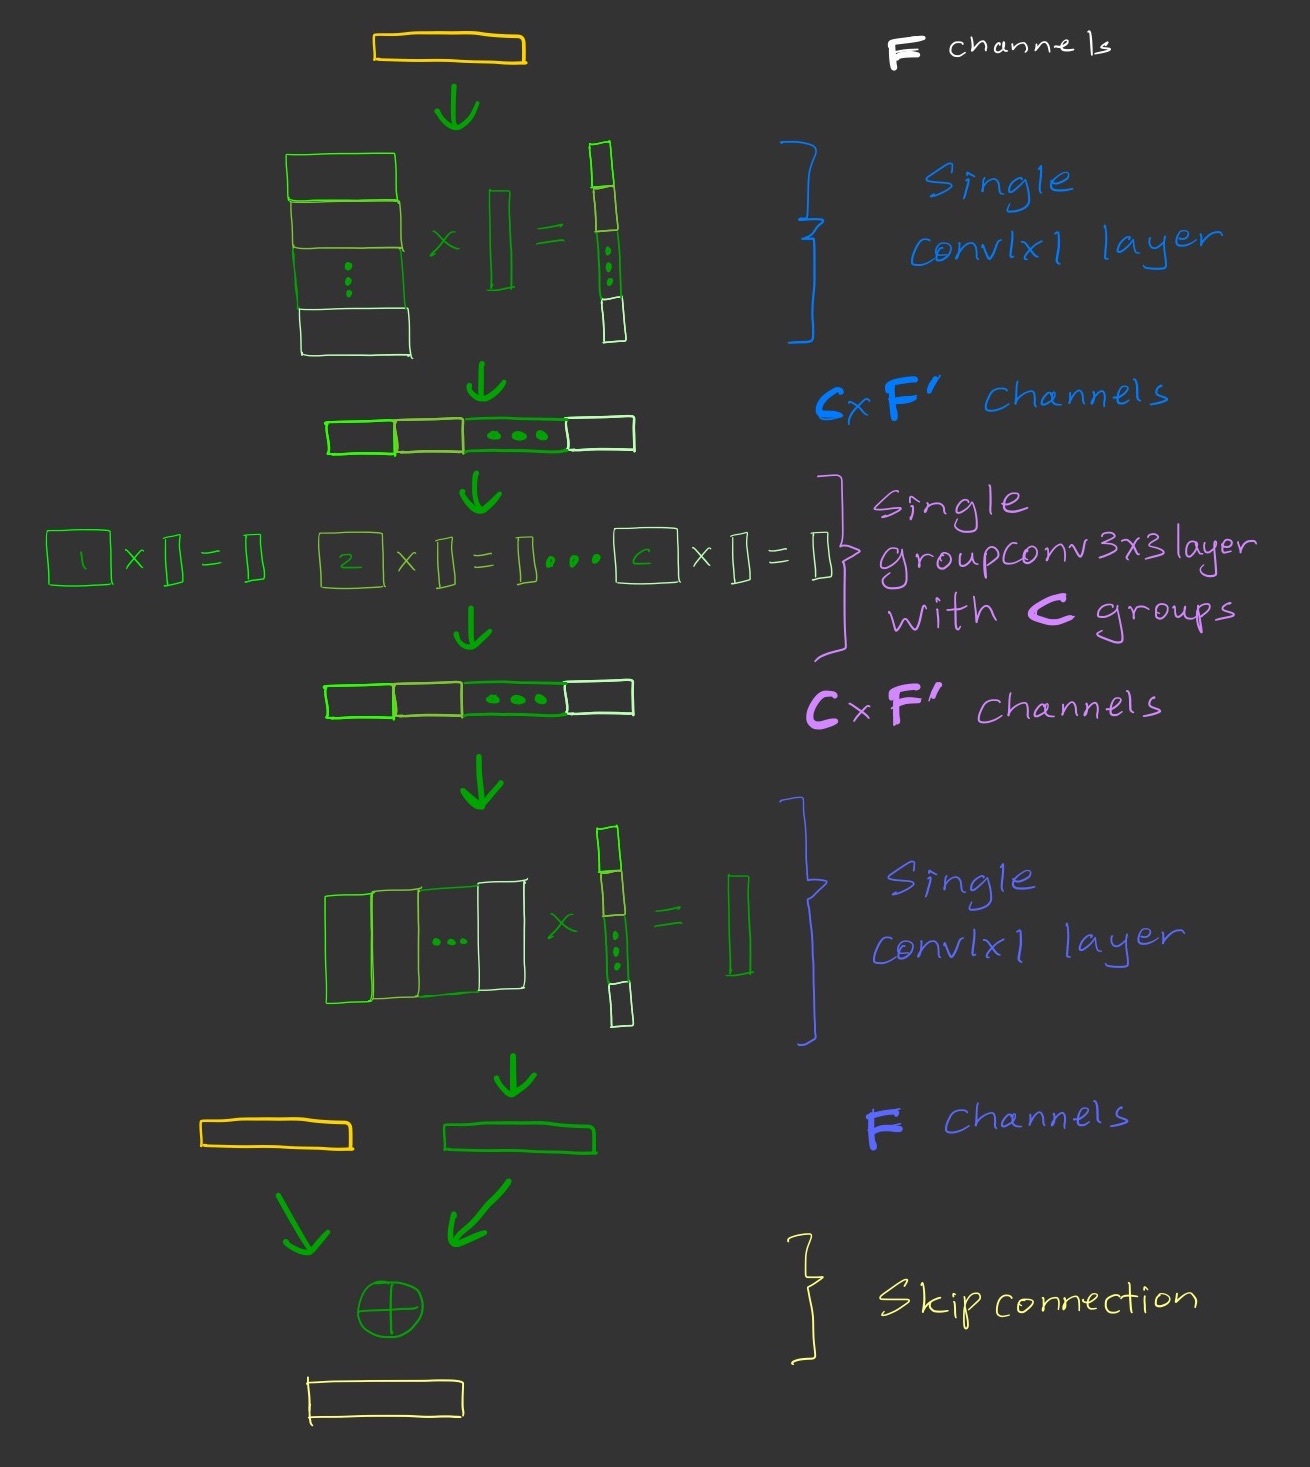 F channels
Single
conv1x1 layer
x =
CxF' channels
1 x = 2 x = ... C x =
Single
groupconv3x3 layer
with C groups
CxF' channels
Single
conv1x1 layer
x =
F channels
Skip connection